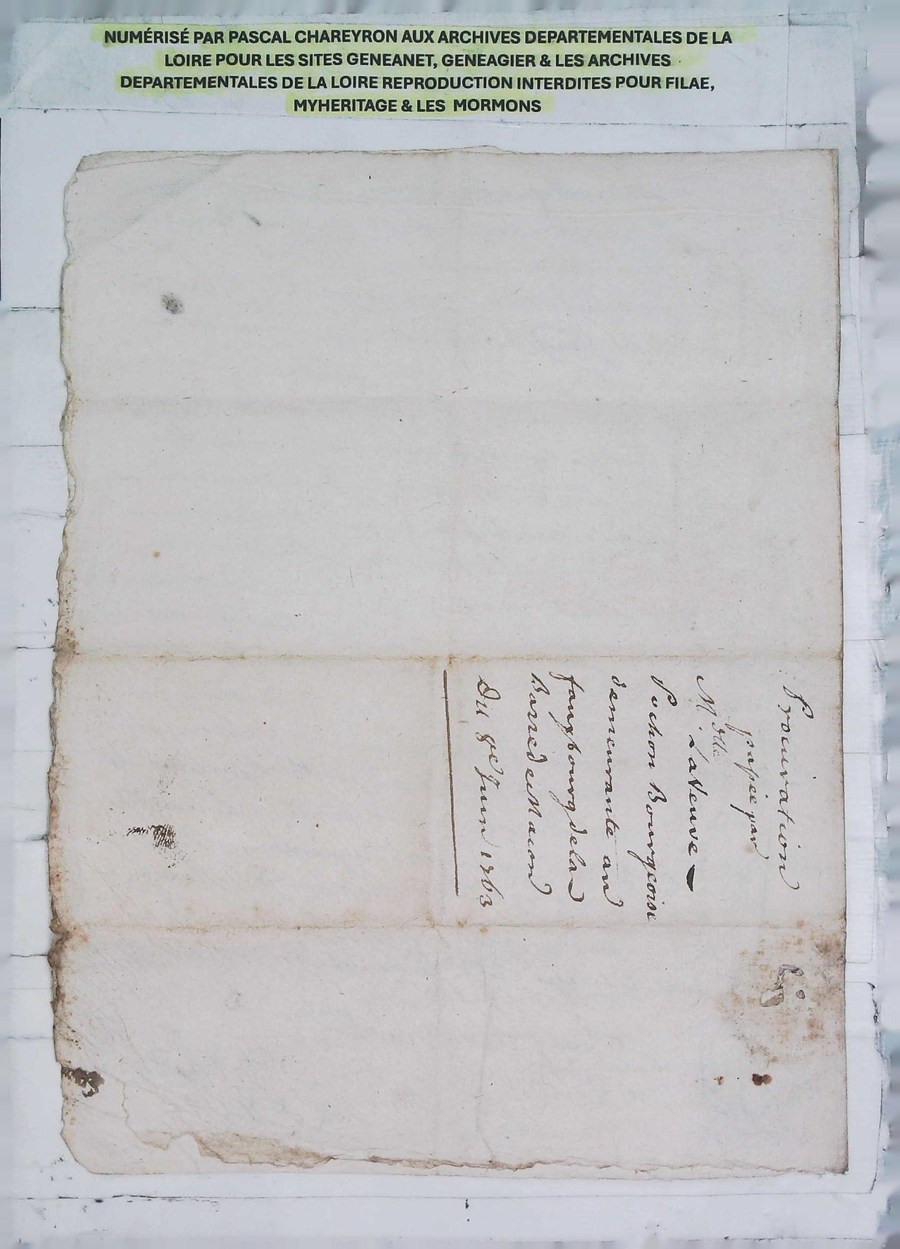 NUMÉRISÉ PAR PASCAL CHAREYRON AUX ARCHIVES DEPARTEMENTALES DE LA
LOIRE POUR LES SITES GENEANET, GENEAGIER & LES ARCHIVES
DEPARTEMENTALES DE LA LOIRE REPRODUCTION INTERDITES POUR FILAE,
MYHERITAGE & LES MORMONS
Procuration
passée par
M.elle La Veuve
Pochon Bourgeoise
demeurante au
fauxbourg de la
Barre de Macon
Du 8e Juin 1763